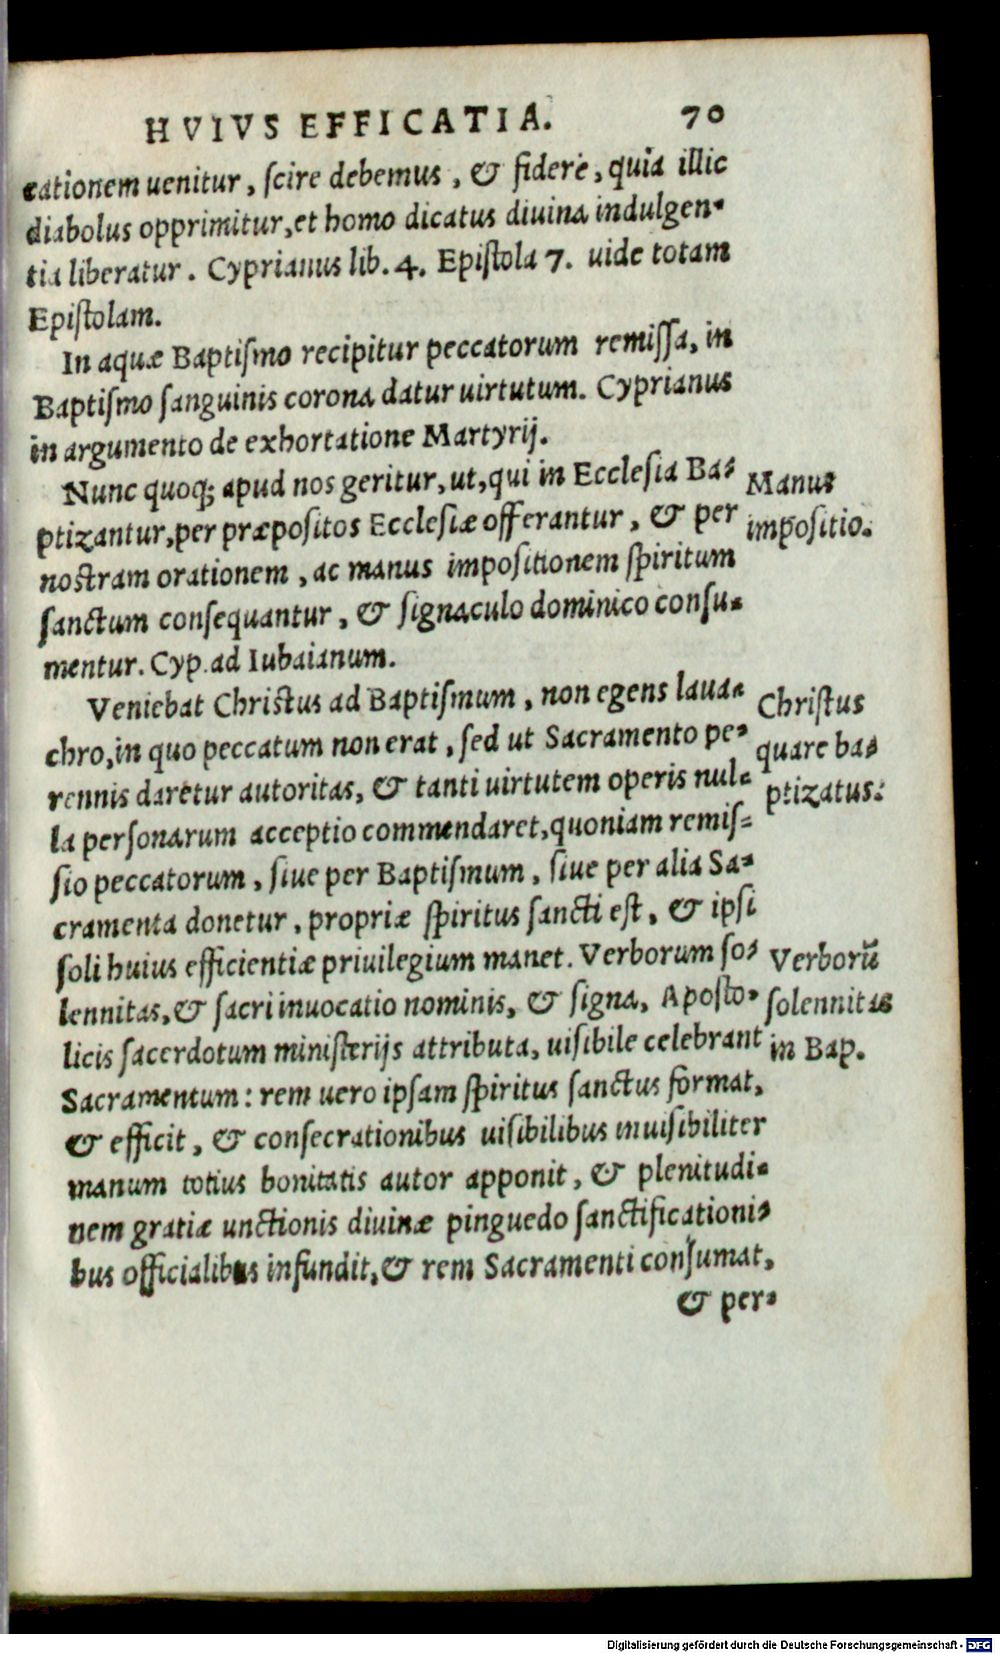 HVIVS EFFICATIA. 70
cationem uenitur, ſcire debemus, & fidere, quia illic
diabolus opprimitur, et homo dicatus diuina indulgen-
tia liberatur. Cyprianus lib. 4. Epiſtola 7. uide totam
Epiſtolam.
In aquæ Baptiſmo recipitur peccatorum remiſſa, in
Baptiſmo ſanguinis corona datur uirtutum. Cyprianus
in argumento de exhortatione Martyrij.
Nunc quoq; apud nos geritur, ut, qui in Eccleſia Ba-
ptizantur, per præpoſitos Eccleſiæ offerantur, & per
noſtram orationem, ac manus impoſitionem ſpiritum
ſanctum conſequantur, & ſignaculo dominico conſu-
mentur. Cyp. ad Iubaianum.
Manus
impoſitio.
Veniebat Chriſtus ad Baptiſmum, non egens laua-
chro, in quo peccatum non erat, ſed ut Sacramento pe-
rennis daretur autoritas, & tanti uirtutem operis nul-
la perſonarum acceptio commendaret, quoniam remiſ-
ſio peccatorum, ſiue per Baptiſmum, ſiue per alia Sa-
cramenta donetur, propriæ ſpiritus ſancti eſt, & ipſi
ſoli huius efficientiæ priuilegium manet. Verborum ſo-
lennitas, & ſacri inuocatio nominis, & ſigna, Apoſto-
licis ſacerdotum miniſterijs attributa, uiſibile celebrant
Sacramentum: rem uero ipſam ſpiritus ſanctus format,
& efficit, & conſecrationibus uiſibilibus inuiſibiliter
manum totius bonitatis autor apponit, & plenitudi-
nem gratiæ unctionis diuinæ pinguedo ſanctificationi-
bus officialibus infundit, & rem Sacramenti conſumat,
& per-
Chriſtus
quare ba-
ptizatus.
Verborũ
ſolennitas
in Bap.
Digitalisierung gefördert durch die Deutsche Forschungsgemeinschaft - DFG